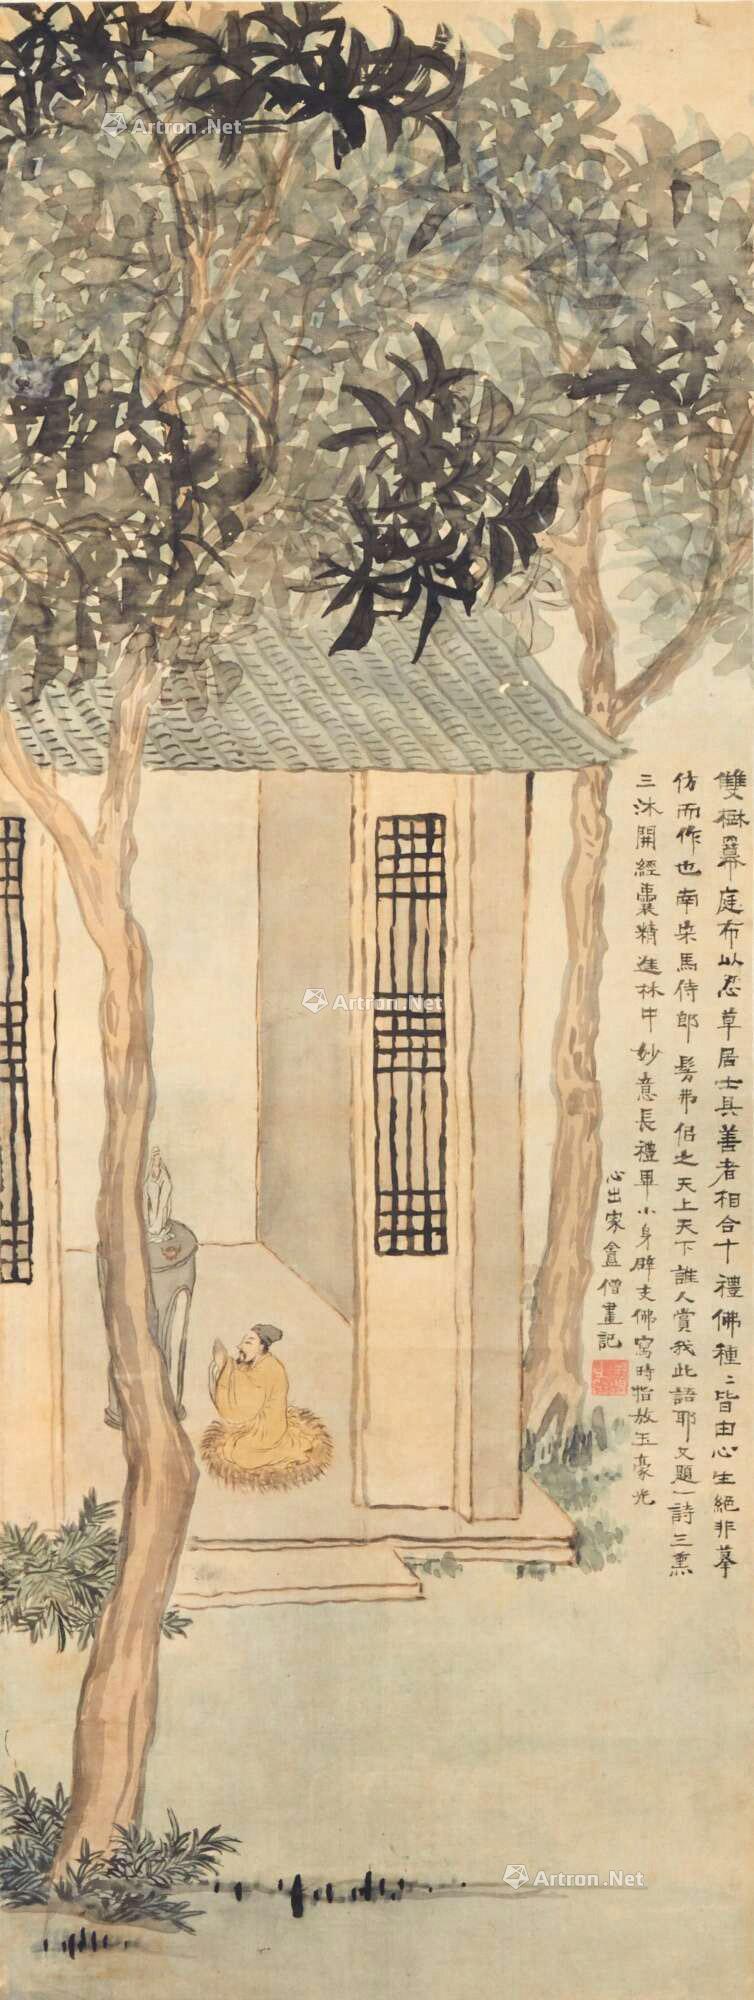 雙樹冪庭布以忍草居士具善者相合十禮佛種〻皆由心生絕非摹
仿而作也南宋馬侍郎髣弗侶之天上天下誰人賞我此語耶又題一詩三熏
三沐開經囊精進林中妙意長禮畢小身辟支佛寫時指放玉豪光
心出家盦僧畫記
Artron.Net
Artron.Net
Artron.Net